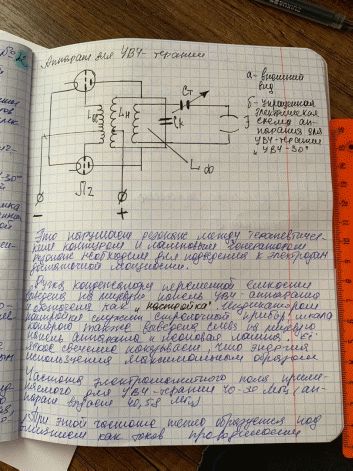 Аппарат для УВЧ-терапии
а- внешний
вид
б- упрощенная
электрическая
схема ап-
парата для
УВЧ-терапии
"УВЧ-30"
Cт
Lк
Cк
Э
Lф
Л2
-
+
Это нарушает резонанс между терапевтичес-
ким контуром и ламповым генератором
резонанс необходим для подведения к электродам
достаточной мощности.
Ручка конденсатора переменной емкости
выведена на лицевую панель УВЧ аппарата
и обозначена как "настройка". Индикатором
настройки служит стрелочный прибор, шкала
которого также выведена слева на лицевую
панель аппарата и неоновая лампа,
яркое свечение показывает, что энергия
используется максимальным образом
Частота электромагнитного поля приме-
няемого для УВЧ-терапии 40-50 МГц
40,58 МГц
При этой частоте тепло образуется под
влиянием как токов проводимости